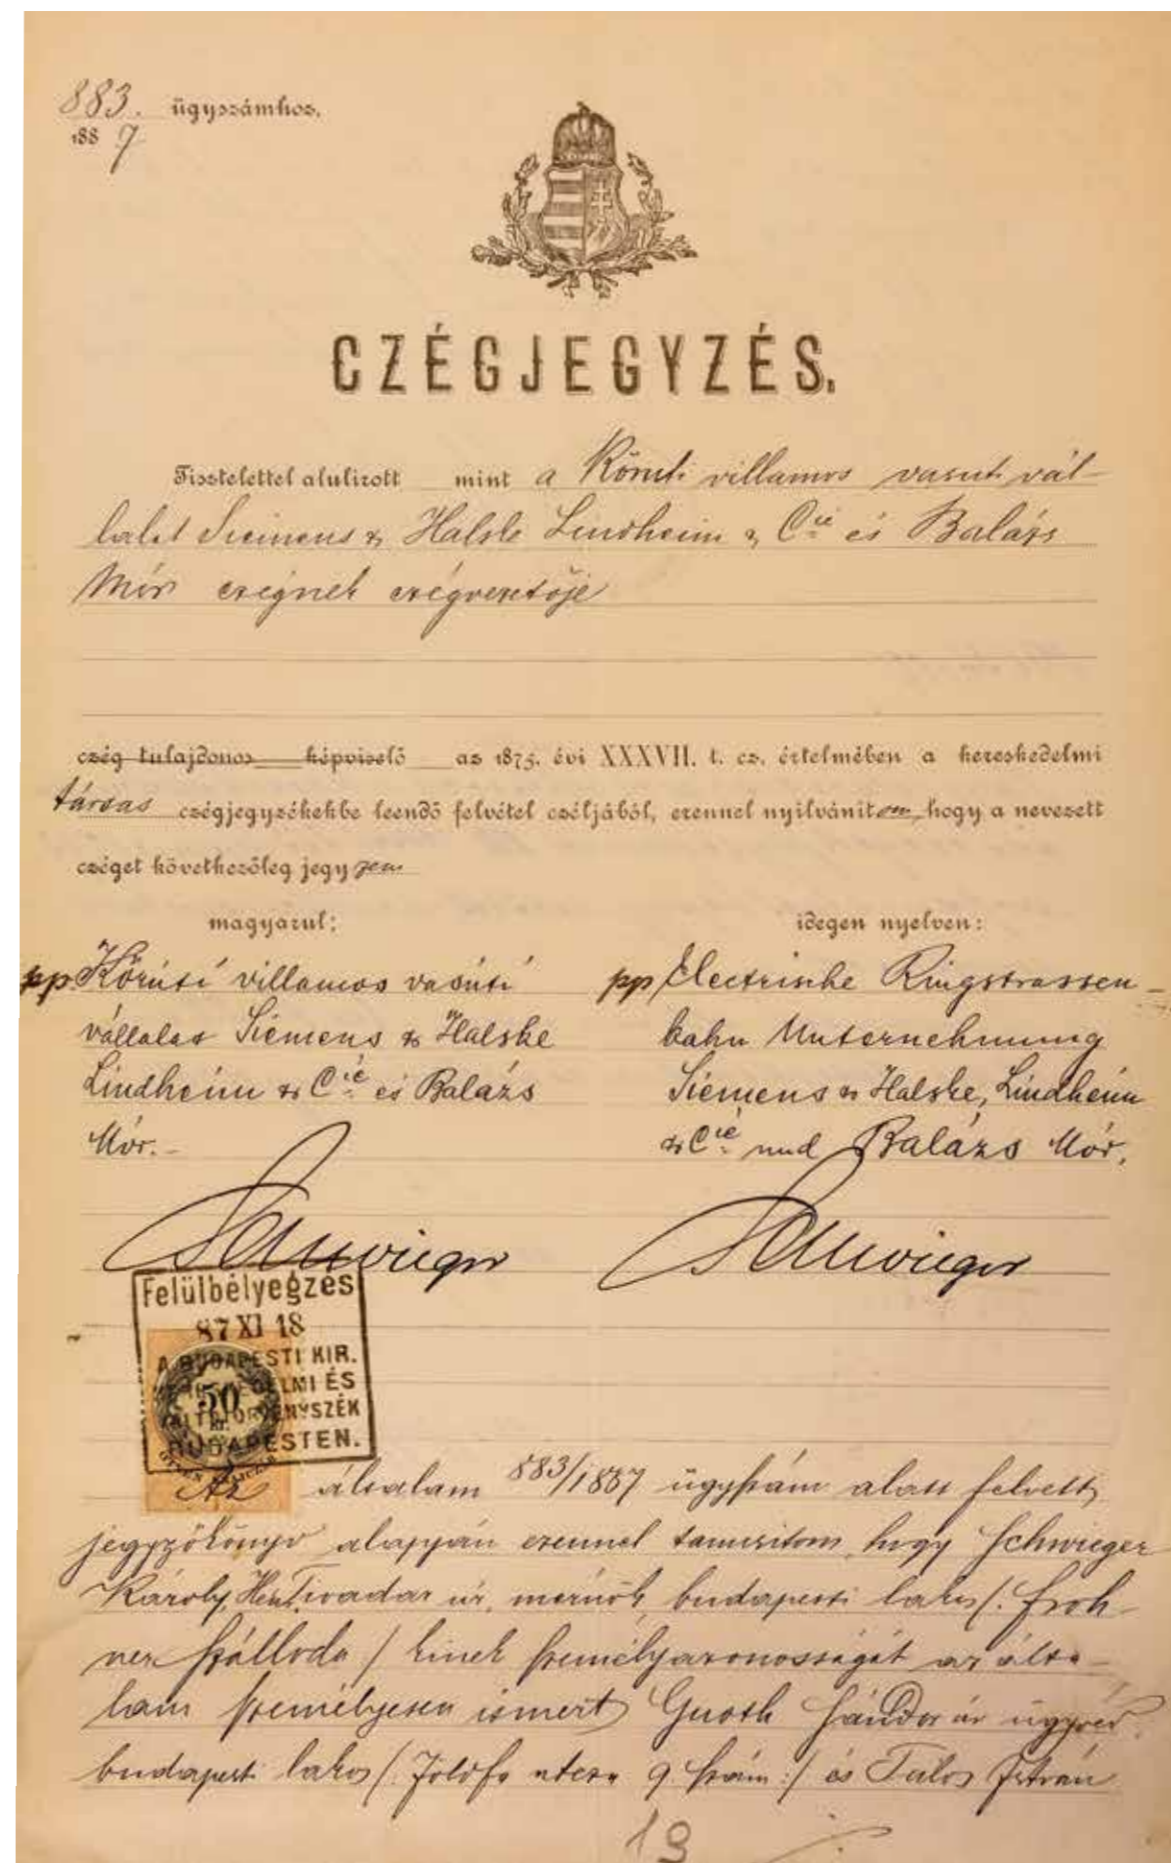 883. ügyszámhoz.
1887
CZÉGJEGYZÉS.
Tisztelettel alulirott mint a Körúti villamos vasut vál-
lalat Siemens & Halske Lindheim & Cie és Balázs
Mór czégnek czégvezetője
czég tulajdonos képviselő az 1875. évi XXXVII. t. cz. értelmében a kereskedelmi
társas czégjegyzékekbe leendő felvétel czéljából, ezennel nyilvánitom, hogy a nevezett
czéget következőleg jegyzem
magyarul:
idegen nyelven:
pp. Körúti villamos vasúti
vállalat Siemens & Halske
Lindheim & Cie és Balázs
Mór.-
Schwieger
pp Electrische Ringstrassen-
bahn Unternehmung
Siemens & Halske, Lindheim
& Cie und Balázs Mór.
Schwieger
Felülbélyegzés
87 XI 18
A BUDAPESTI KIR.
ÉS
BUDAPESTEN.
50
kr.
Az általam 883/1887 ügyszám alatt felvett
jegyzőkönyv alapján ezennel tanusitom, hogy Schwieger
Károly, Henr. Tivadar úr, mérnök, budapesti lakos (: Froh-
ner szálloda / kinek személyazonosságát az álta-
lam személyesen ismert Guoth Sándor úr ügyvéd,
budapest lakos (: Zöldfa utcza 9 szám :/ és István
13